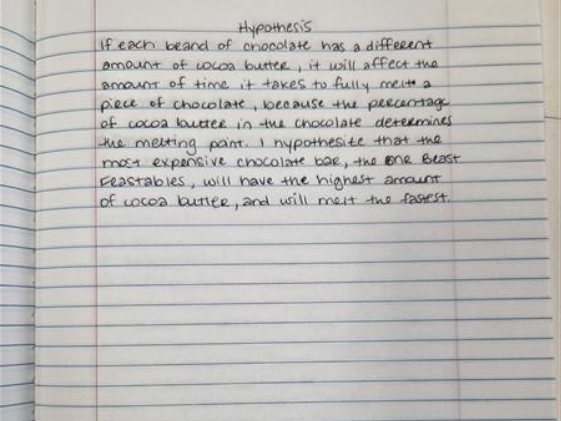 Hypothesis
If each brand of chocolate has a different
amount of cocoa butter, it will affect the
amount of time it takes to fully melt a
piece of chocolate, because the percentage
of cocoa butter in the chocolate determines
the melting point. I hypothesize that the
most expensive chocolate bar, the Beast
Feastables, will have the highest amount
of cocoa butter, and will melt the fastest.